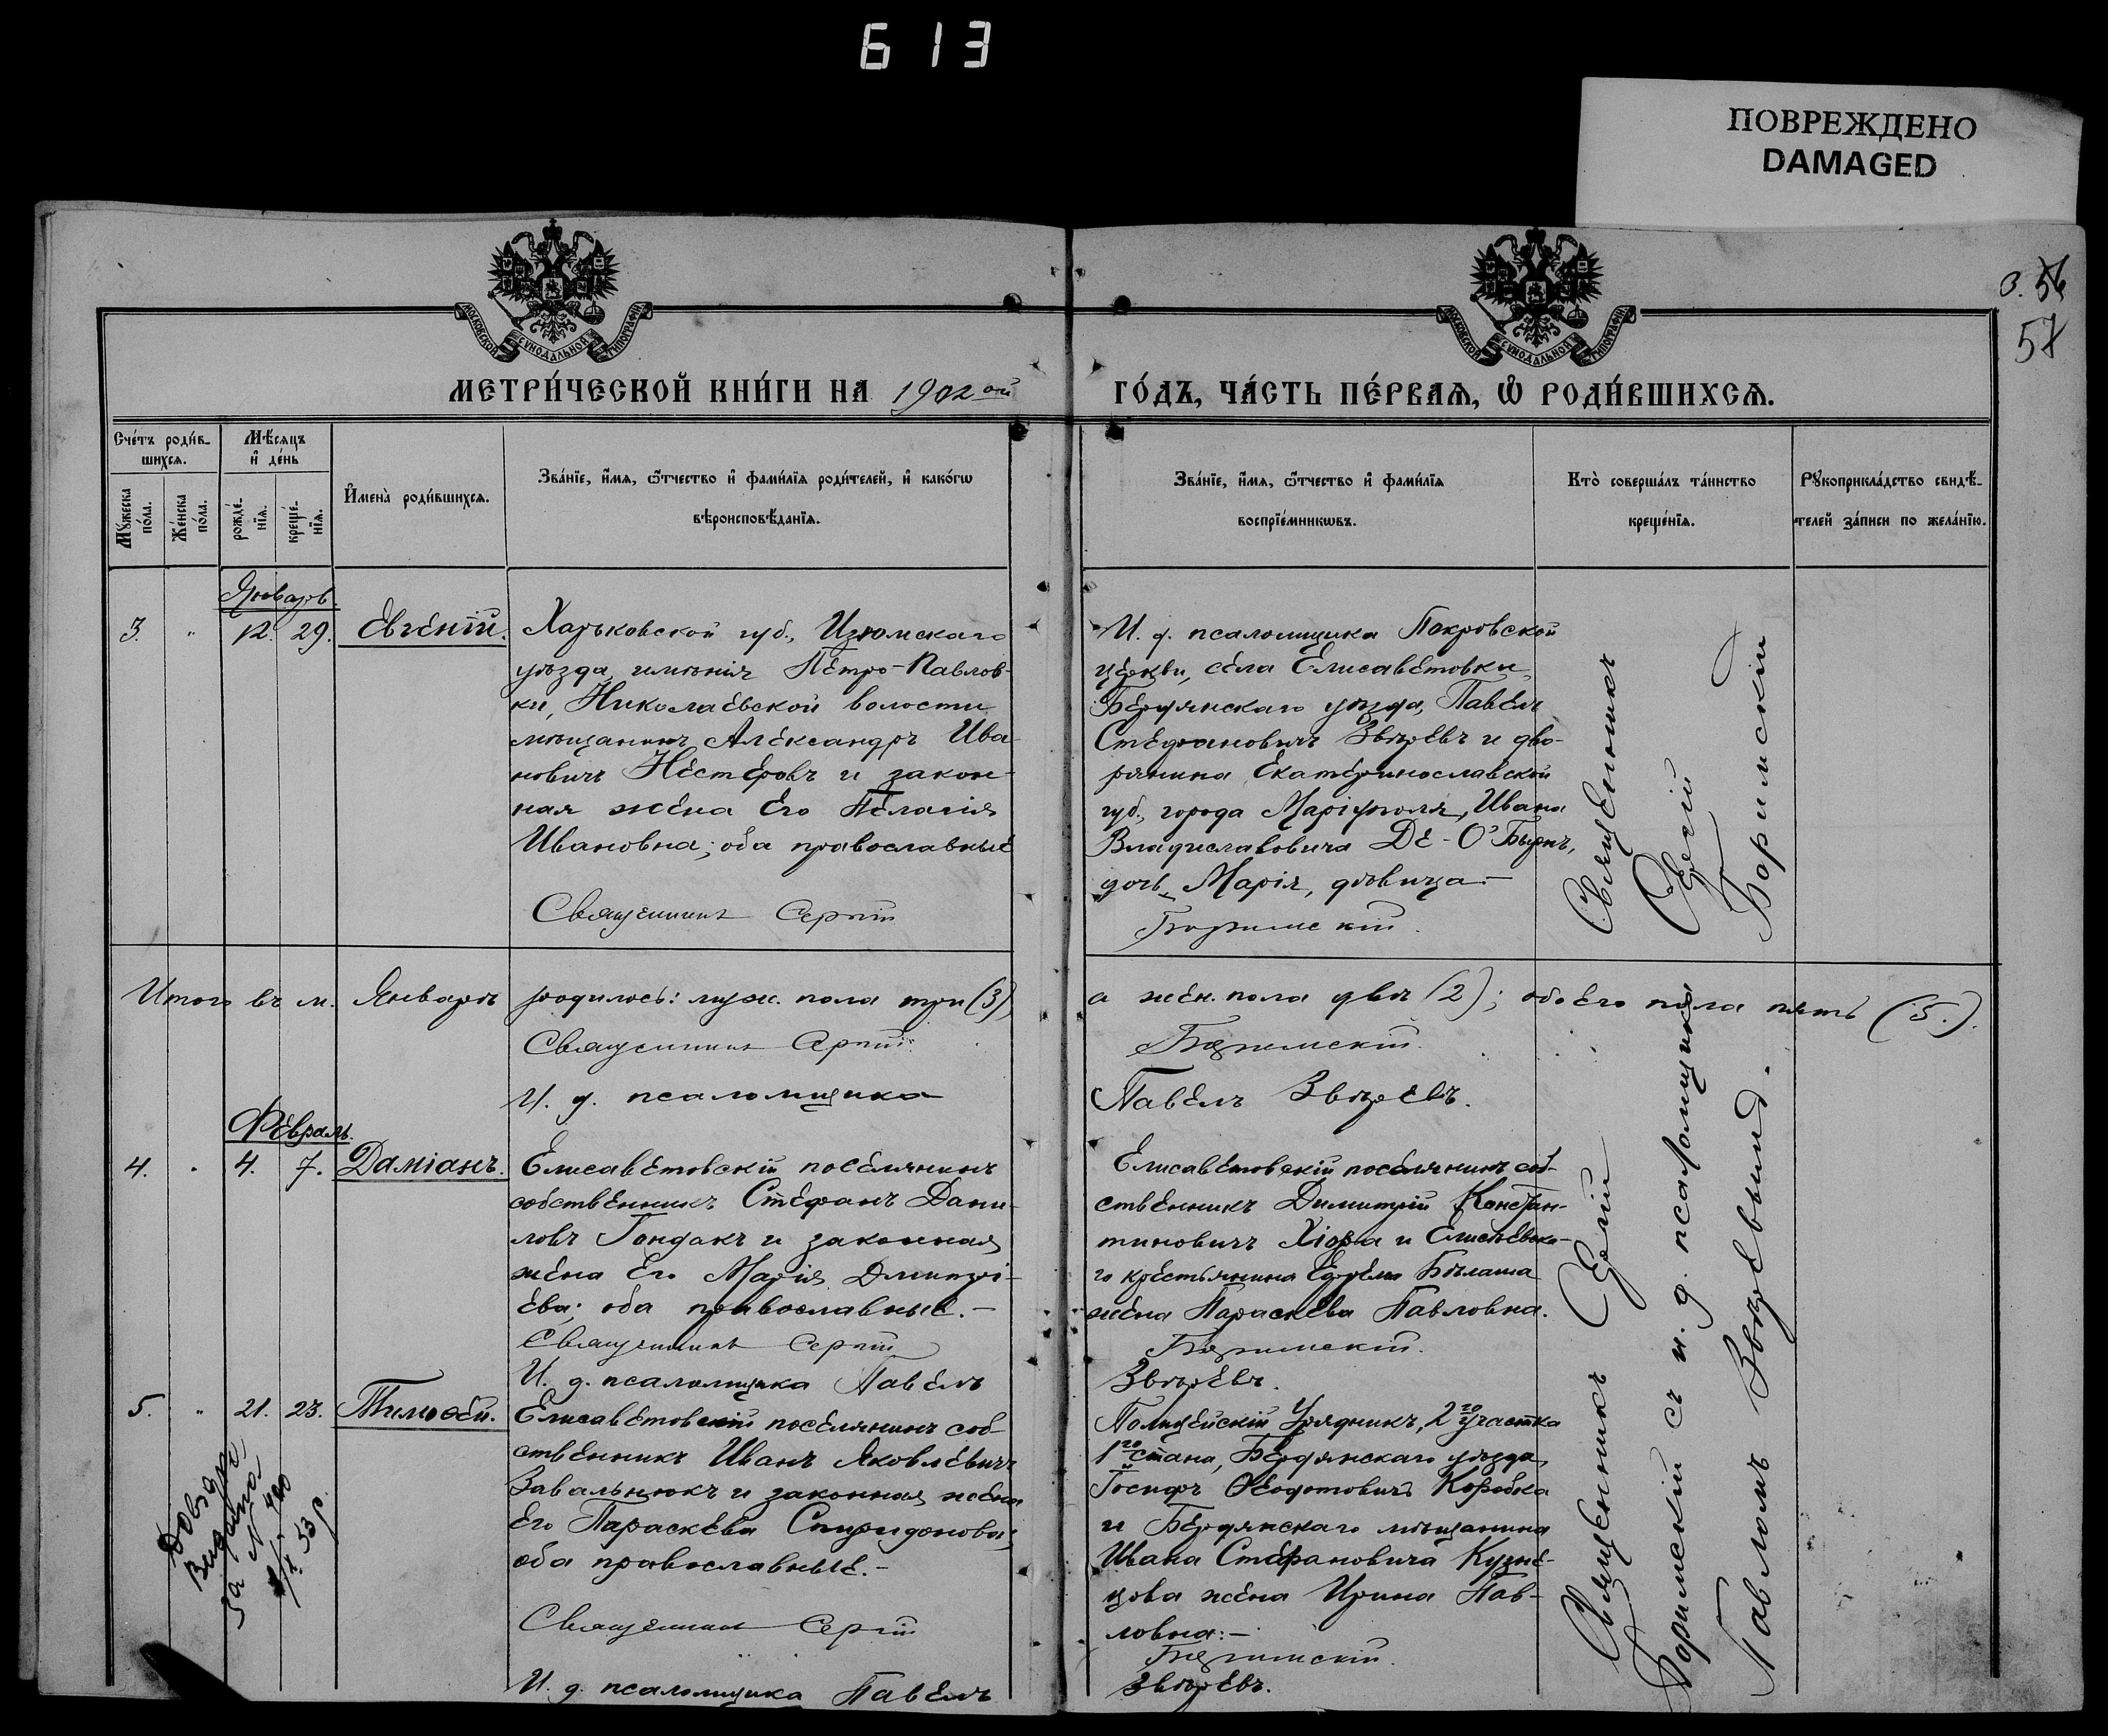 613
ПОВРЕЖДЕНО
DAMAGED
МОСКОВСКОЙ СѴНОДАЛЬНОЙ ТИПОГРАФІИ
МОСКОВСКОЙ СѴНОДАЛЬНОЙ ТИПОГРАФІИ
57
МЕТРИ́ЧЕСКОЙ КНИ́ГИ НА 1902ой
ГО́ДЪ, ЧА́СТЬ ПЕ́РВАѦ, Ѡ РОДИ́ВШИХСѦ.
Сче́тъ роди́в-
шихсѧ.
Мѣ́сяцъ
и де́нь
Мꙋ́жеска
по́ла.
Же́нска
по́ла.
рожде́-
нїѧ.
креще́-
нїѧ.
Имена̀ роди́вшихсѧ.
Зва́нїе, и́мѧ, ѿтчество и фами́лїѧ роди́телей, и како́гѡ
вѣроисповѣ́данїѧ.
Зва́нїе, и́мѧ, ѿтчество и фами́лїѧ
воспрїе́мникѡвъ.
Кто̀ соверша́лъ та́инство
креще́нїѧ.
Рꙋкоприкла́дство свидѣ́-
телей за́писи по жела́нїю.
Январь
3. " 12. 29. Евгеній.
Харьковской губ., Изюмскаго
уѣзда, имѣнія Петро-Павлов-
ки, Николаевской волости
мѣщанинъ Александръ Ива-
новичъ Нестеровъ и закон-
ная жена его Пелагія
Ивановна; оба православные
Священникъ Сергій
И. д. псаломщика Покровской
церкви, села Елисаветовки,
Бердянскаго уѣзда, Павелъ
Стефановичъ Звѣревъ и дво-
рянина Екатеринославской
губ., города Маріуполя, Ивана
Владиславовича Де-О'Бырнъ,
дочь Марія, дѣвица.—
Боримскій.
Священникъ
Сергій
Боримскій
Итого въ м. Январѣ родилось: муж. пола три (3)
а жен. пола двѣ (2); обоего пола пять (5.).
Священникъ Сергій
Боримскій.
И. д. псаломщика
Павелъ Звѣревъ.
Февраль.
4. " 4. 7. Даміанъ.
Елисаветовскій поселянинъ
собственникъ Стефанъ Дани-
ловъ Гондакъ и законная
жена его Марія Димитрі-
ева; оба православные.—
Священникъ Сергій
И. д. псаломщика Павелъ
Елисаветовскій поселянинъ соб-
ственникъ Димитрій Констан-
тиновичъ Хіора и
го крестьянина Ефрема Бѣлаша
жена Параскева Павловна.
Боримскій.
Звѣревъ.
5. " 21. 23. Тимоѳей.
Елисаветовскій поселянинъ соб-
ственникъ Иванъ Яковлевичъ
Завальнюкъ и законная жена
его Параскева Спиридонова;
оба православные.—
Священникъ Сергій
И. д. псаломщика Павелъ
Полицейскій Урядникъ, 2го участка
1го стана, Бердянскаго уѣзда,
Іосифъ Ѳеодотовичъ Коробка
и Бердянскаго мѣщанина
Ивана Стефановича Кузне-
цова жена Ирина Пав-
ловна:—
Боримскій.
Звѣревъ.
Священникъ Сергій
Боримскій съ и. д. псаломщика
Павломъ Звѣревымъ.
Видана
за N
53 р.